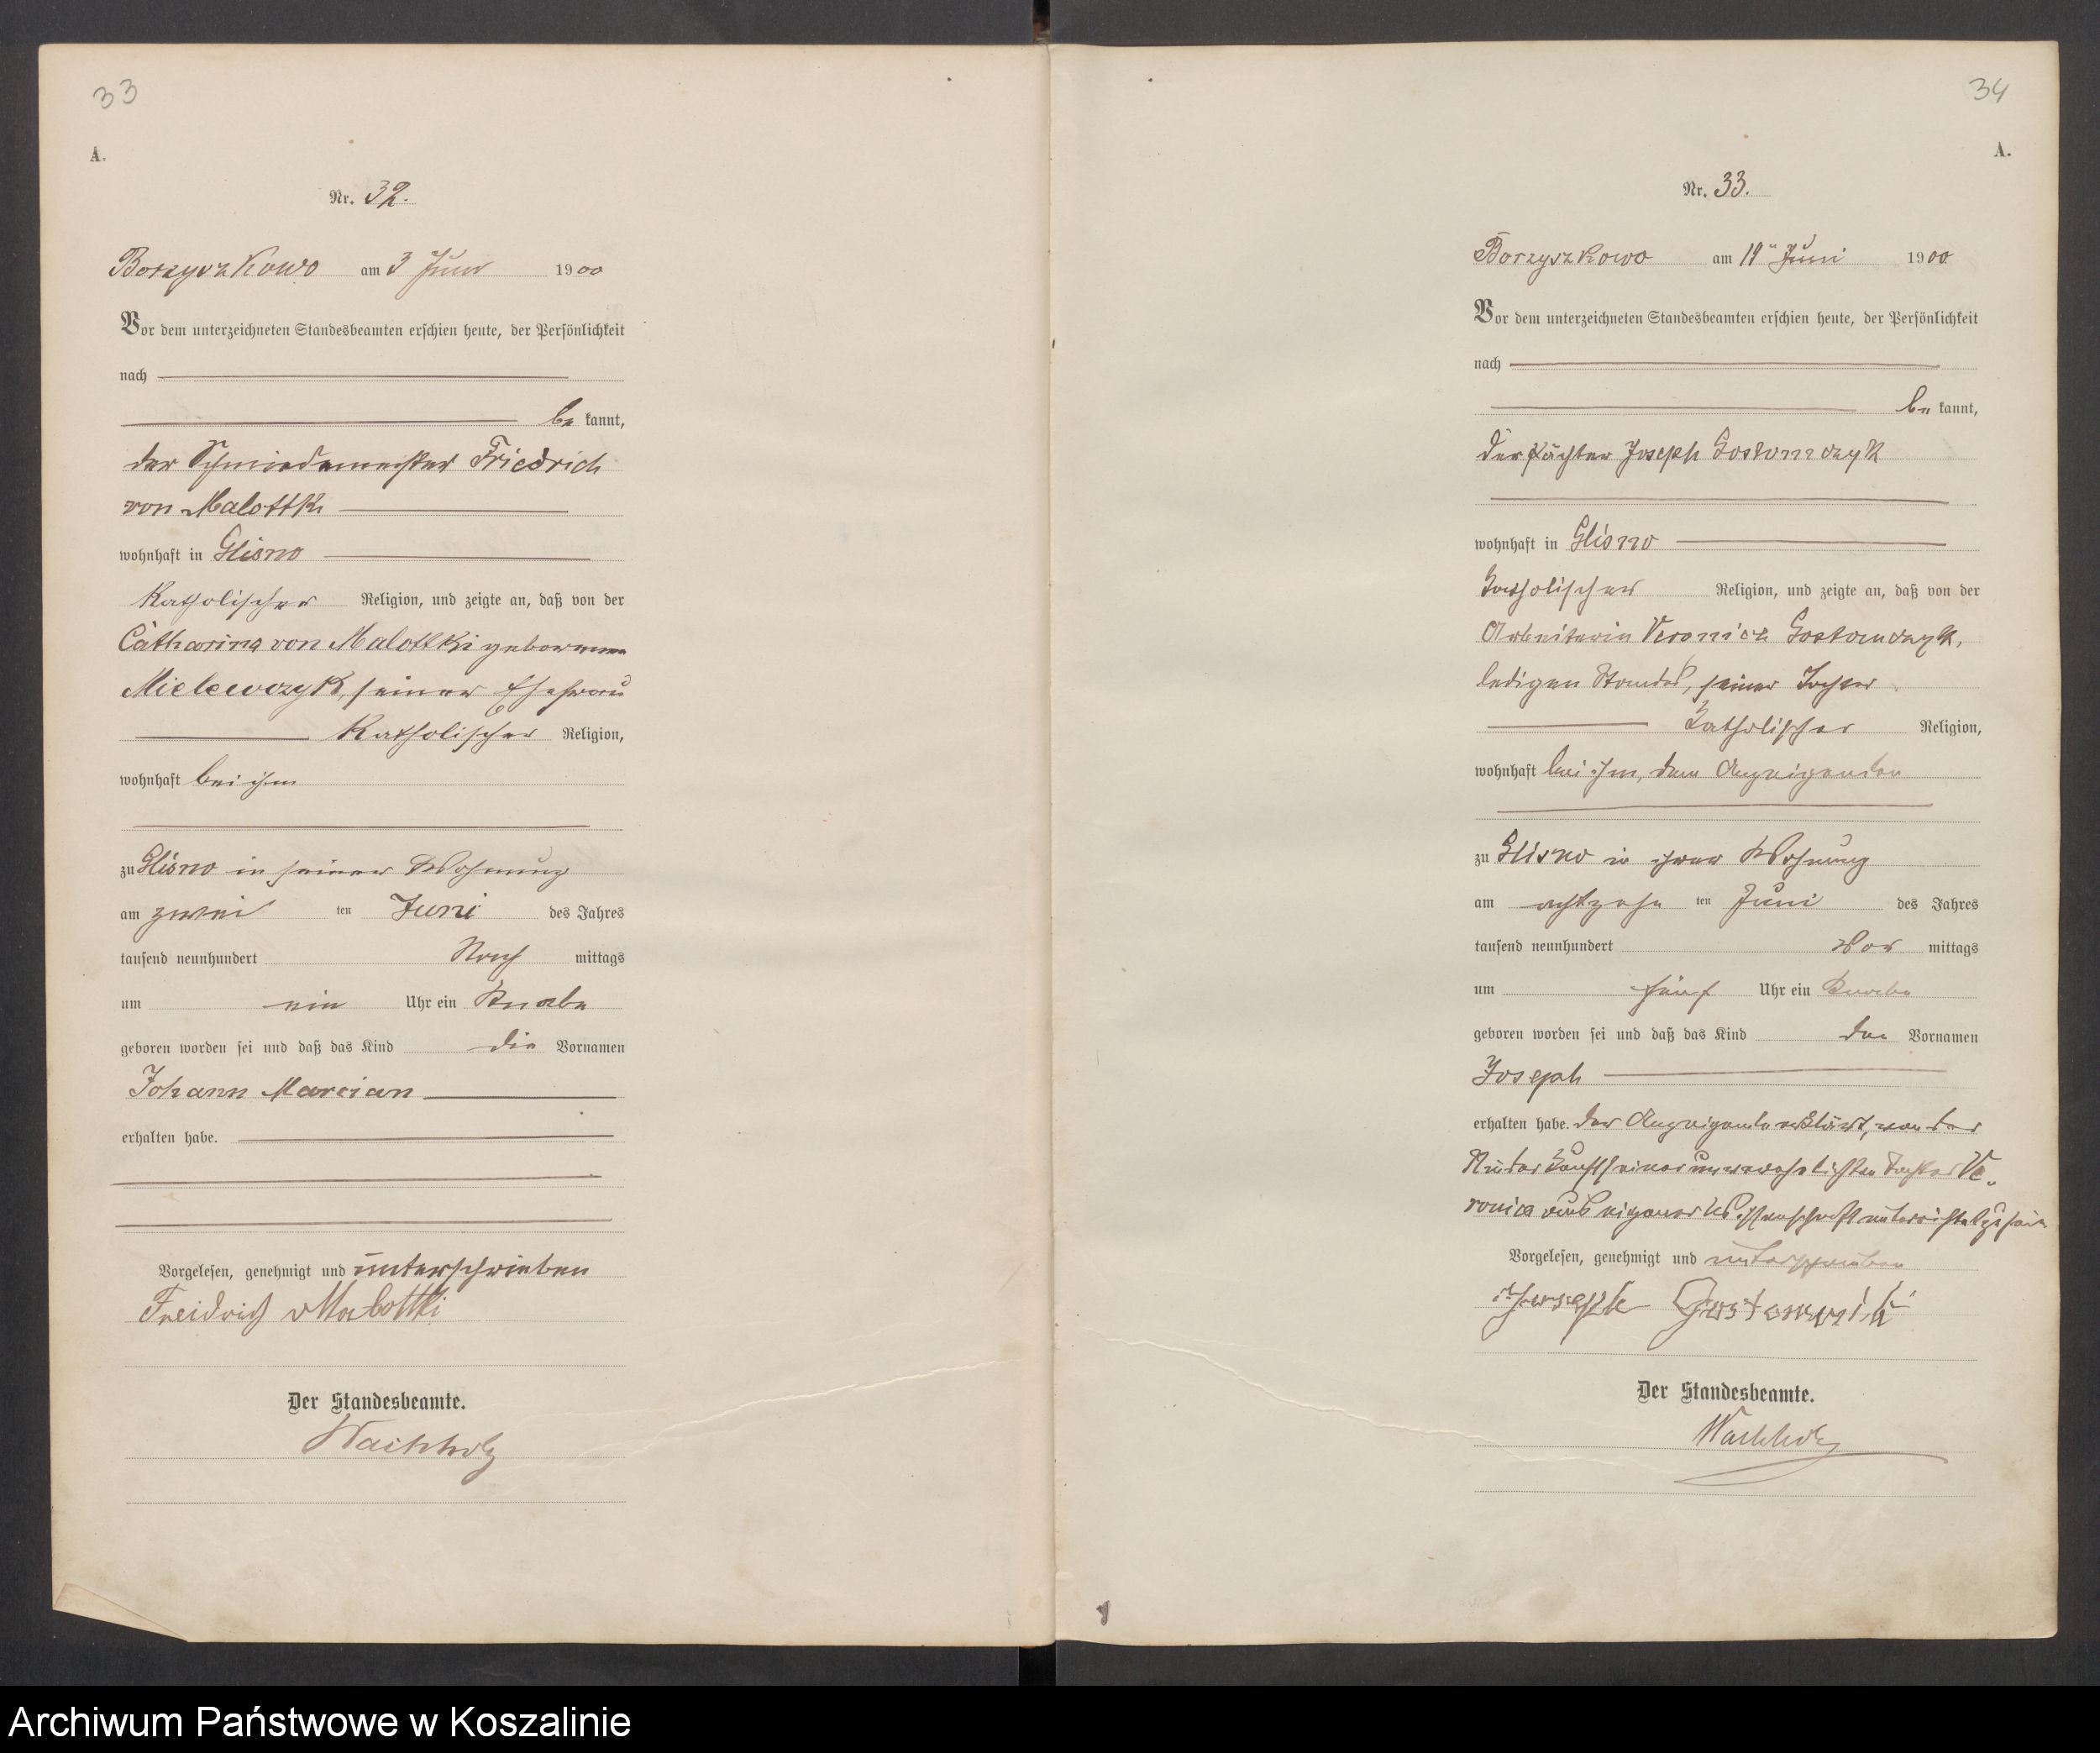 33
A.
Nr. 32.
Borzyszkowo am 3 Juni 1900
Vor dem unterzeichneten Standesbeamten erschien heute, der Persönlichkeit
nach
be kannt,
der Schmiedemeister Friedrich
von Malottki
wohnhaft in Glisno
Katholischer Religion, und zeigte an, daß von der
Catharina von Malottki geborenen
Mielewczyk, seiner Ehefrau
Katholischer Religion,
wohnhaft bei ihm
zu Glisno in seiner Wohnung
am zwei ten Juni des Jahres
tausend neunhundert Nach mittags
um ein Uhr ein Knabe
geboren worden sei und daß das Kind die Vornamen
Johann Marcian
erhalten habe.
Vorgelesen, genehmigt und unterschrieben
Freidrich v Malottki
Der Standesbeamte.
Wachholz
34
A.
Nr. 33.
Borzyszkowo am 19ten Juni 1900
Vor dem unterzeichneten Standesbeamten erschien heute, der Persönlichkeit
nach
be kannt,
der Pächter Joseph Gostomczyk
wohnhaft in Glisno
Katholischer Religion, und zeigte an, daß von der
Arbeiterin Veronica Gostomczyk,
ledigen Standes, seiner Tochter
Katholischer Religion,
wohnhaft bei ihm, dem Anzeigenden
zu Glisno in ihrer Wohnung
am achtzehn ten Juni des Jahres
tausend neunhundert Vor mittags
um fünf Uhr ein Knabe
geboren worden sei und daß das Kind den Vornamen
Joseph
erhalten habe. Der Anzeigende erklärt, von der
Niederkunft seiner unverehelichten Tochter Ve-
ronica aus eigener Wissenschaft unterrichtet zu sein
Vorgelesen, genehmigt und unterschrieben
Joseph
Der Standesbeamte.
Wachholz
Archiwum Państwowe w Koszalinie